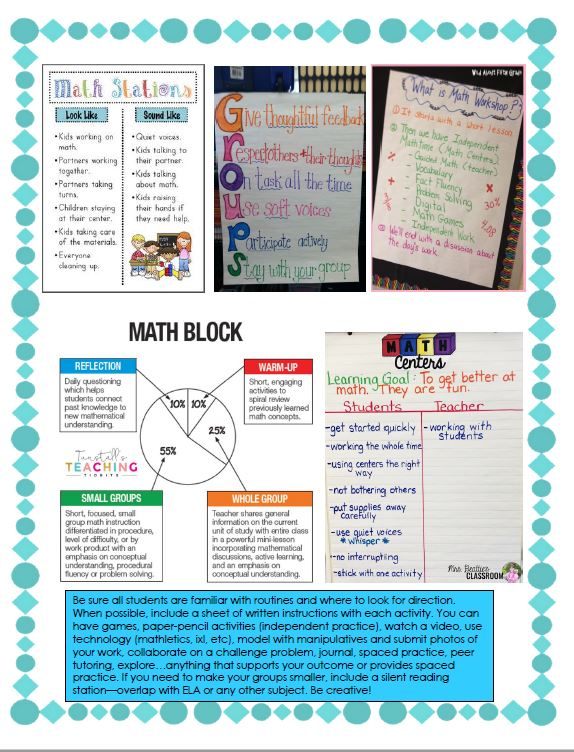 Math Stations
Look Like
•Kids working on
math.
•Partners working
together.
•Partners taking
turns.
•Children staying
at their center.
•Kids taking care
of the materials.
•Everyone
cleaning up.
Sound Like
•Quiet voices.
•Kids talking to
their partner.
•Kids talking
about math.
•Kids raising
their hands if
they need help.
Give thoughtful feedback
respect others + their thoughts
On task all the time
Use soft voices
Participate actively
Stay with your group
What is Math
Workshop?
① It starts with a short lesson.
② Then we have Independent
Math Time (Math Centers)
- Guided Math (teacher)
- Vocabulary
- Fact Fluency
- Problem Solving
- Digital
- Math Games
- Independent Work
③ We'll end with a discussion about
the day's work.
30%
MATH BLOCK
REFLECTION
Daily questioning
which helps
students connect
past knowledge to
new mathematical
understanding.
WARM-UP
Short, engaging
activities to
spiral review
previously learned
math concepts.
10%
10%
25%
55%
Tunstall's
TEACHING
TIDBITS
SMALL GROUPS
Short, focused, small
group math instruction
differentiated in procedure,
level of difficulty, or by
work product with an
emphasis on conceptual
understanding, procedural
fluency or problem solving.
WHOLE GROUP
Teacher shares general
information on the current
unit of study with entire class
in a powerful mini-lesson
incorporating mathematical
discussions, active learning,
and an emphasis on
conceptual understanding.
MATH
Centers
Learning Goal: To get better at
math. They are fun.
Students
-get started quickly
-working the whole time
-using centers the right
way
-not bothering others
-put supplies away
carefully
-use quiet voices
*whisper*
-no interrupting
-stick with one activity
Teacher
-working with
students
CLASSROOM
Be sure all students are familiar with routines and where to look for direction.
When possible, include a sheet of written instructions with each activity. You can
have games, paper-pencil activities (independent practice), watch a video, use
technology (mathletics, ixl, etc), model with manipulatives and submit photos of
your work, collaborate on a challenge problem, journal, spaced practice, peer
tutoring, explore…anything that supports your outcome or provides spaced
practice. If you need to make your groups smaller, include a silent reading
station—overlap with ELA or any other subject. Be creative!